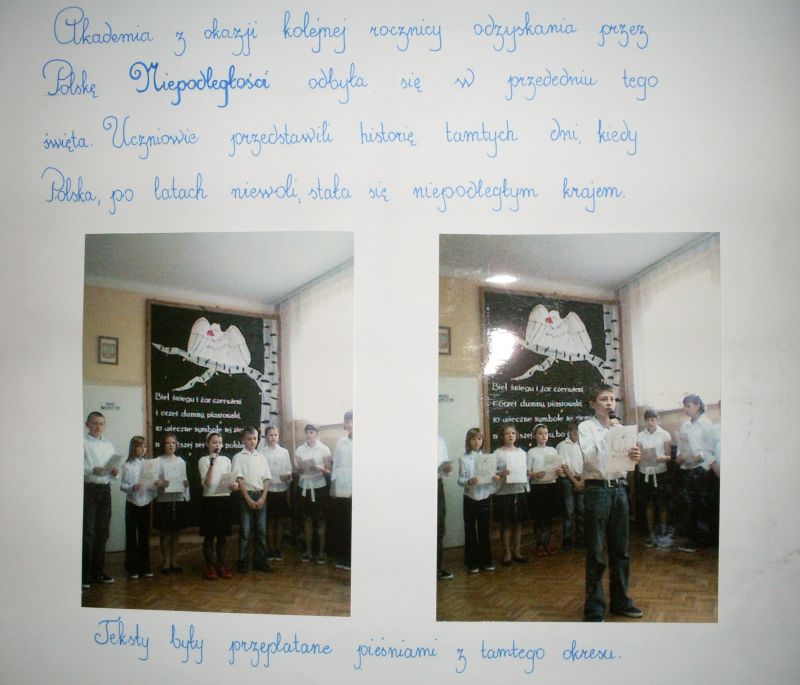 Akademia z okazji kolejnej rocznicy odzyskania przez
Polskę Niepodległości odbyła się w przededniu tego
święta. Uczniowie przedstawili historię tamtych dni, kiedy
Polska, po latach niewoli, stała się niepodległym krajem.
Biel śniegu i żar czerwieni
i orzeł dumny, piastowski,
to wieczne symbole tej
Biel śniegu i żar czerwieni
i orzeł dumny, piastowski,
to wieczne symbole tej
Teksty były przeplatane pieśniami z tamtego okresu.